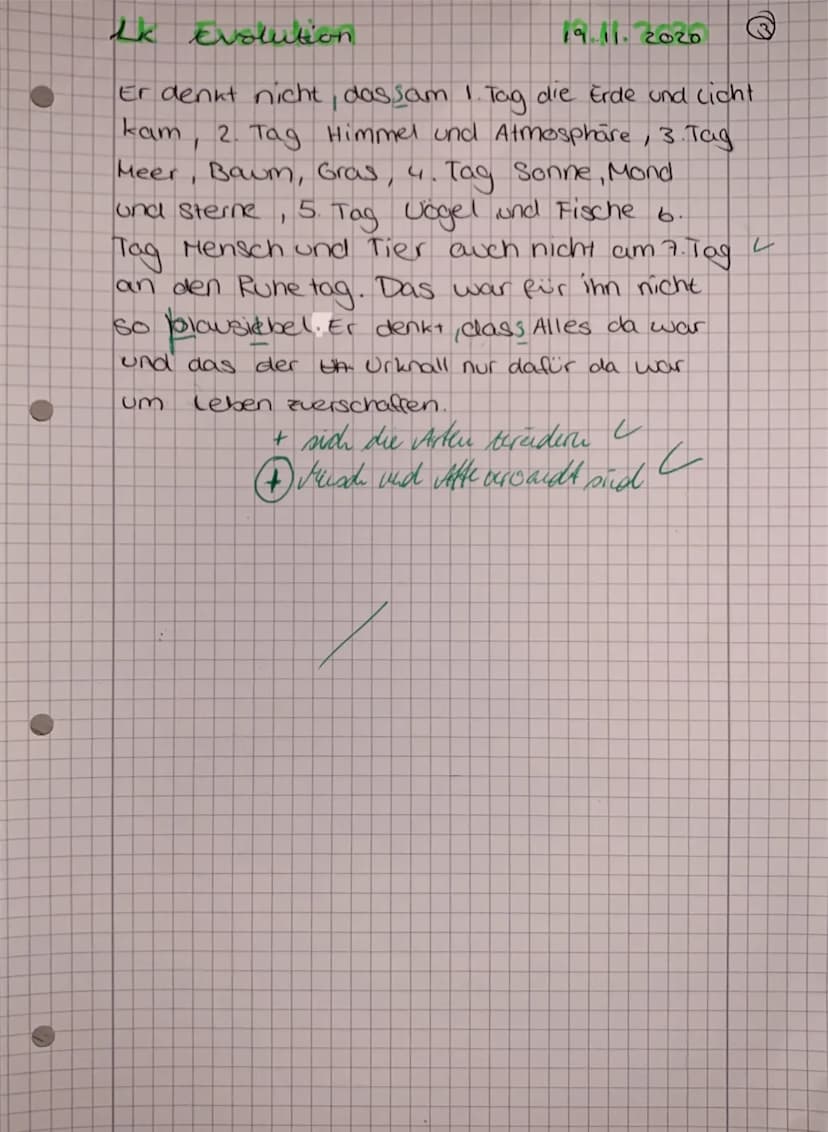 Lk Evolution 19.11.2020 3
Er denkt nicht, dass am 1. Tag die Erde und Licht
kam, 2. Tag Himmel und Atmosphäre, 3. Tag
Meer, Baum, Gras, 4. Tag Sonne, Mond
und Sterne, 5. Tag Vögel und Fische 6.
Tag Mensch und Tier auch nicht am 7. Tag
an den Ruhetag. Das war für ihn nicht
so plausiebel. Er denkt, dass Alles da war
und das der Urknall nur dafür da war
um Leben zuerschaffen.
+ sich die Arten verändern
+ Mensch und Affe verwandt sind